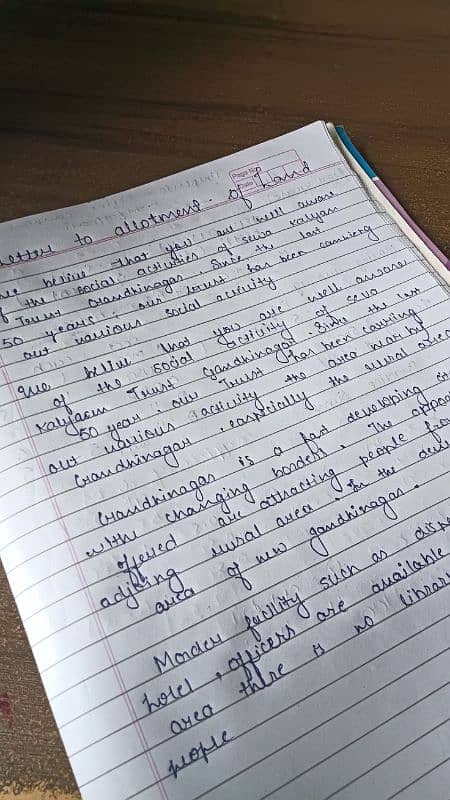 Page No
Date
Letter to allotment of Land
we belive that you are well aware
of the social activities of seva kalyan
Trust Grandhinagar. Since the last
50 years; our trust has been carrieng
out various social activity
We belive that you are well aware
of the social activity of seva
Kalyacm Trust Grandhinagar. Since the last
50 year; our Trust has been carring
out various activity the area near by
Grandhinagar, especially the rural area
Grandhinagar is a fast developing
with changing borders. The
offered are attracting people
adjoing rural area. In the
area of new gandhinagar.
Morden facility such as
hotel, officers are available
area there is no
people